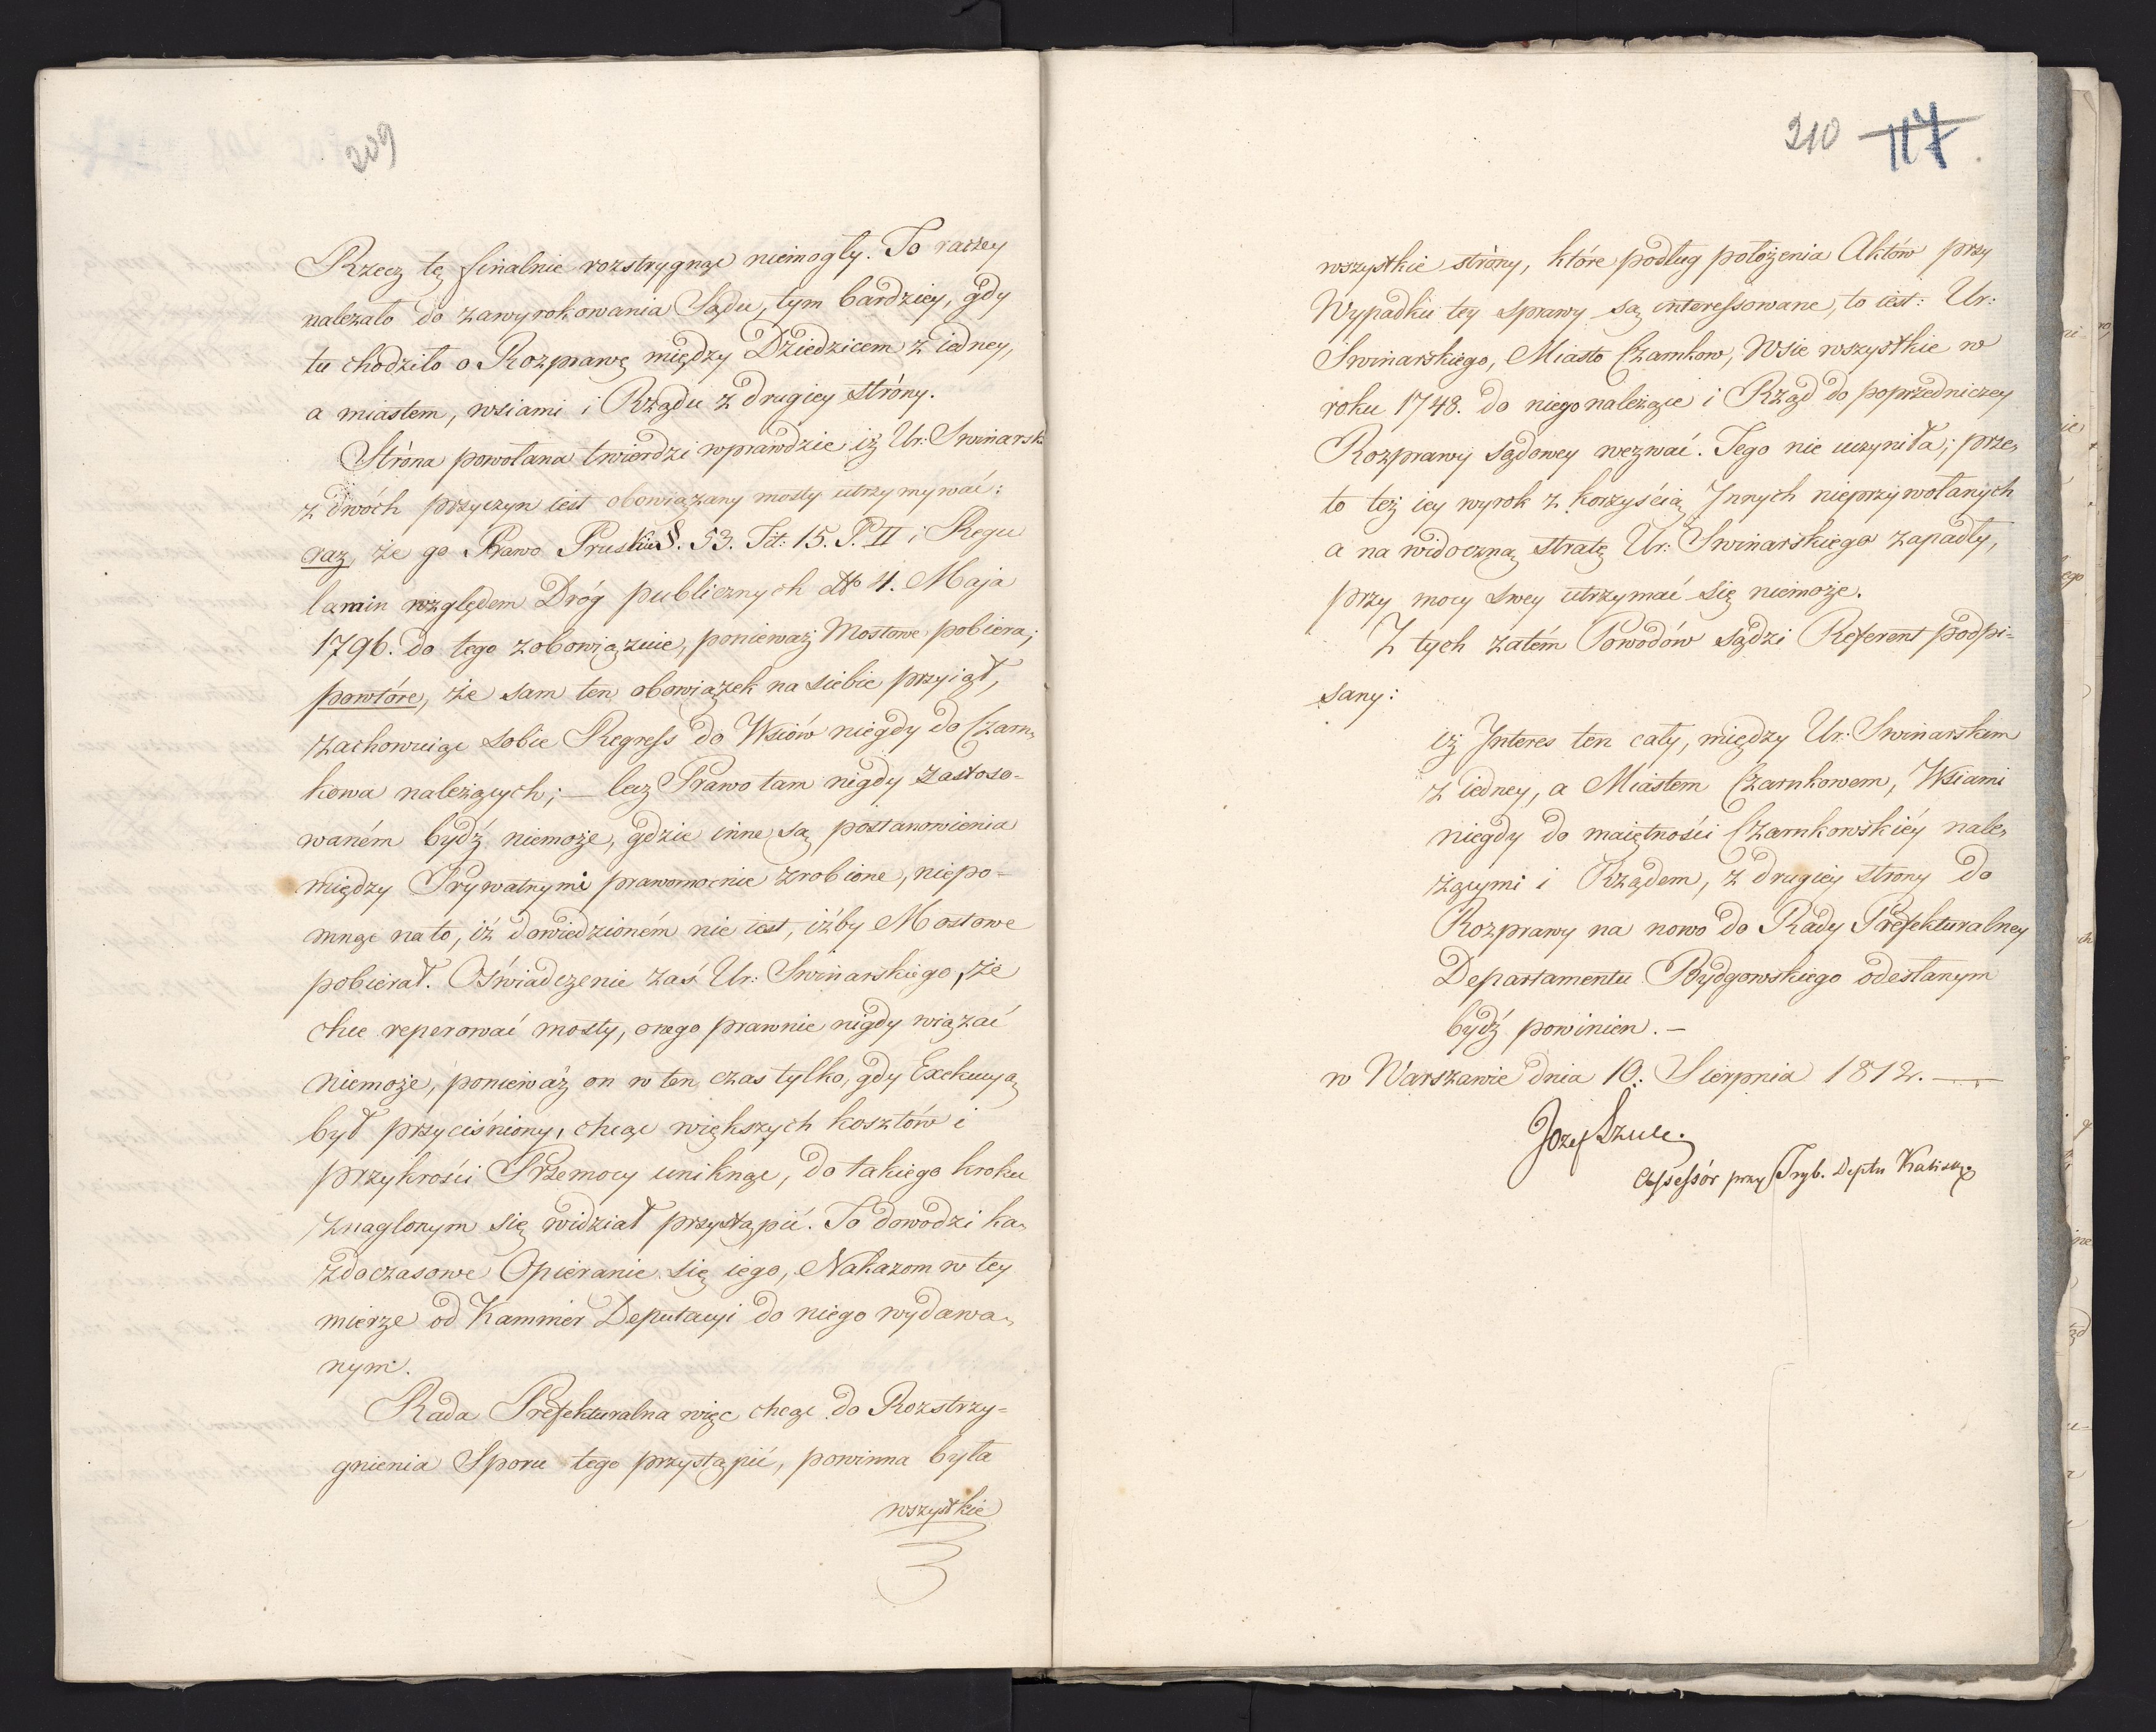 209
Rzecz tę finalnie rozstrygnąć niemogły. To raczey
należało do zawyrokowania Sądu, tym bardziey, gdy
tu chodziło o Rozprawę między Dziedzicem z iedney,
a miastem, wsiami i Rządu z drugiey stróny.
Stróna powołana twierdzi wprawdzie iż Ur: Swinarsk
z dwóch przyczyn iest obowiązany mosty utrzymywać:
raz, że go Prawo Pruskie §. 53. Tit: 15. P. II i Regu
lamin względem Dróg publicznych dto 4. Maja
1796. do tego zobowiązuie, ponieważ Mostowe pobiera;
powtóre, że sam ten obowiązek na siebie przyiął,
zachowuiąc sobie Regress do Wsiów niegdy do Czarn,
kowa należących; — lecz Prawo tam nigdy zastoso-
waném bydź niemoże, gdzie inne są postanowienia
między Prywatnymi prawomocnie zrobione, niepo-
mnąc na to, iż dowiedzioném nie iest, iżby Mostowe
pobierał. Oświadczenie zaś Ur: Swinarskiego, że
chce reperować mosty, onego prawnie nigdy wiązać
niemoże, ponieważ on w ten czas tylko, gdy Exekucyą
był przyciśniony, chcąc większych kosztów i
przykrości Przemocy uniknąć, do takiego kroku
znaglonym się widział przystąpić. To dowodzi ka,
żdoczasowe Opieranie się iego, Nakazom w tey
mierze od Kammer Deputacyi do niego wydawa,
nym.
Rada Prefekturalna więc chcąc do Rozstrzy-
gnienia Sporu tego przystąpić, powinna była
wszystkie
210 117
wszystkie stróny, które podług położenia Aktów przy
Wypadku tey sprawy są interessowane, to iest: Ur:
Swinarskiego, Miasto Czarnkow, Wsie wszystkie w
roku 1748. do niego należące i Rząd do poprzedniczey
Rozprawy sądowey wezwać. Tego nie uczyniła; prze,
to też iey wyrok z korzyścią Innych nieprzywołanych
a na widoczną stratę Ur: Swinarskiego zapadły,
przy mocy swey utrzymać się niemoże.
Z tych zatém Powodów sądzi Referent podpi-
sany:
iż Interes ten cały, między Ur: Swinarskim
z iedney, a Miastem Czarnkowem, Wsiami
niegdy do maiętności Czarnkowskiéy nale,
żącymi i Rządem, z drugiey strony do
Rozprawy na nowo do Rady Prefekturalney
Departamentu Bydgowskiego odesłanym
bydź powinien. —
w Warszawie dnia 10. Sierpnia 1812. —
Jozef Szulc
Assessór przy Tryb. Deptu Kalisk.